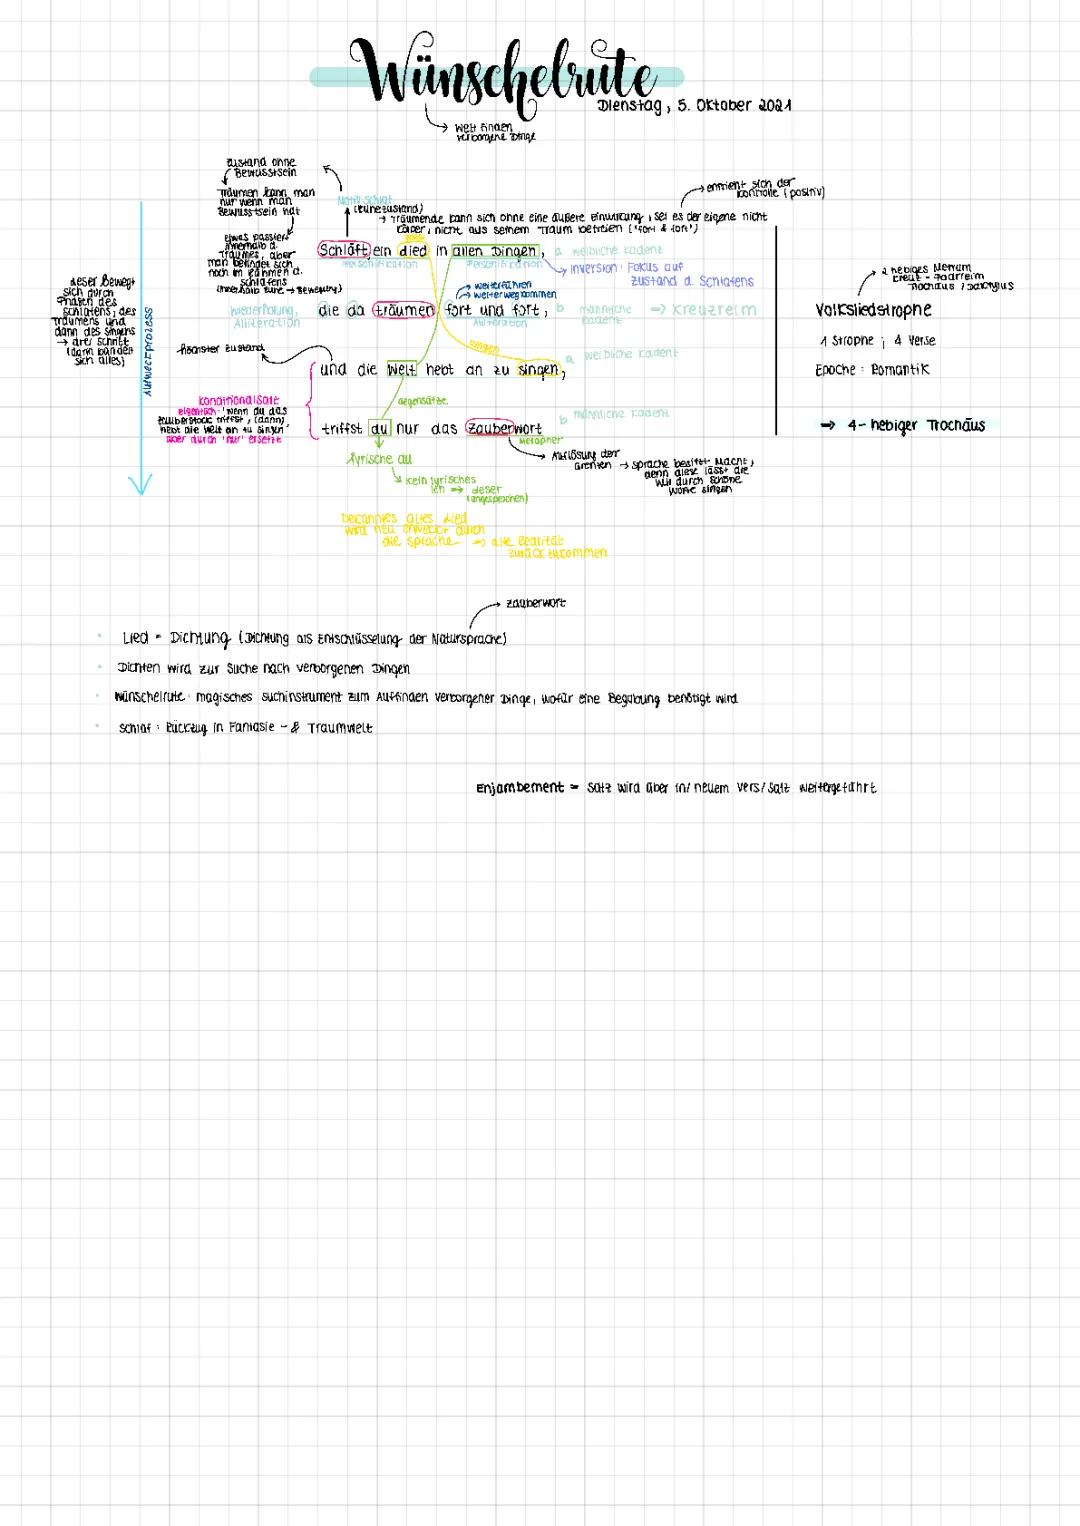 Wünschelrute
Dienstag, 5. Oktober 2021
Welt finden
verborgene Dinge
Zustand ohne
Bewusstsein
Träumen kann man
nur wenn man
Bewusstsein hat
Motiv Schlaf
(Ruhezustand)
→ entzieht sich der
Kontrolle (positiv)
→ Träumende kann sich ohne eine äußere Einwirkung, sei es der eigene nicht
Körper, nicht aus seinem Traum befreien ("fort & fort")
etwas passiert
innerhalb d.
Traumes, aber
man befindet sich
noch im Rahmen d.
Schlafens
(innerhalb Ruhe → Bewegung)
Schläft ein Lied in allen Dingen, a weibliche Kadenz
Personifikation Personifikation
→ Inversion: Fokus auf
Zustand d. Schlafens
→ weiterführen
→ weiter wegkommen
Wiederholung,
Alliteration
die da träumen fort und fort, b männliche Kadenz → Kreuzreim
Alliteration
singen
Leser bewegt
sich durch
Phasen des
Schlafens, des
Träumens und
dann des Singens
→ drei Schritt
(dann handelt
sich alles)
Aufweckprozess
höchster Zustand
und die Welt hebt an zu singen, a weibliche Kadenz
Gegensätze
Konditionalsatz
eigentlich "wenn du das
Zauberstock triffst, (dann)
hebt die Welt an zu singen"
aber durch "nur" ersetzt
triffst du nur das Zauberwort b männliche Kadenz
Metapher
lyrische du
kein lyrisches
Ich → Leser
(angesprochen)
→ Auflösung der
Grenzen → Sprache besitzt Macht,
denn diese lässt die
Welt durch schöne
Worte singen
bekanntes altes Lied
wird neu erweckt durch
die Sprache → alte Realität
zurückzukommen
Volksliedstrophe
1 Strophe ; 4 Verse
Epoche: Romantik
→ 4-hebiger Trochäus
→ Zauberwort
Lied = Dichtung (Dichtung als Entschlüsselung der Natursprache)
Dichten wird zur Suche nach verborgenen Dingen
Wünschelrute: magisches Suchinstrument zum Auffinden verborgener Dinge, wofür eine Begabung benötigt wird
Schlaf: Rückzug in Fantasie- & Traumwelt
Enjambement = Satz wird über in/neuem Vers/Satz weitergeführt